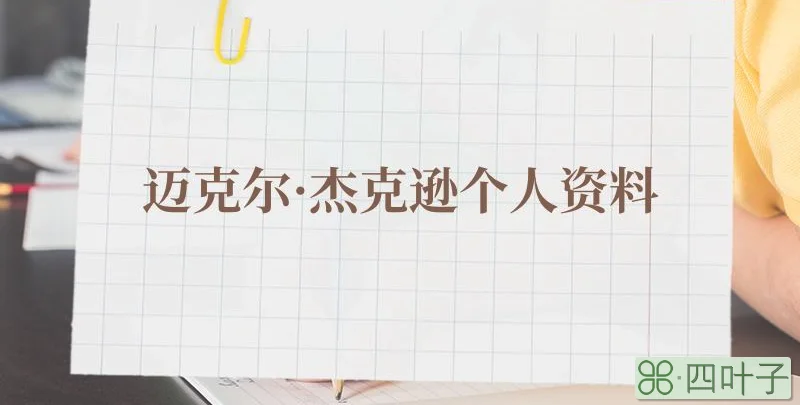 迈克尔·杰克逊个人资料
四叶子